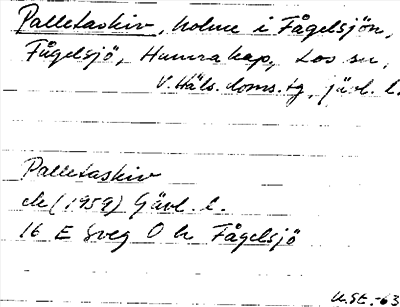 Palletaskiv, holme i Fågelsjön,
Fågelsjö, Hamra kap., Los sn,
V. Häls. doms.tg, Gävl. l.
Palletaskiv
ek (1959) Gävl. l.
16 E Sveg O h Fågelsjö
U.St.-63